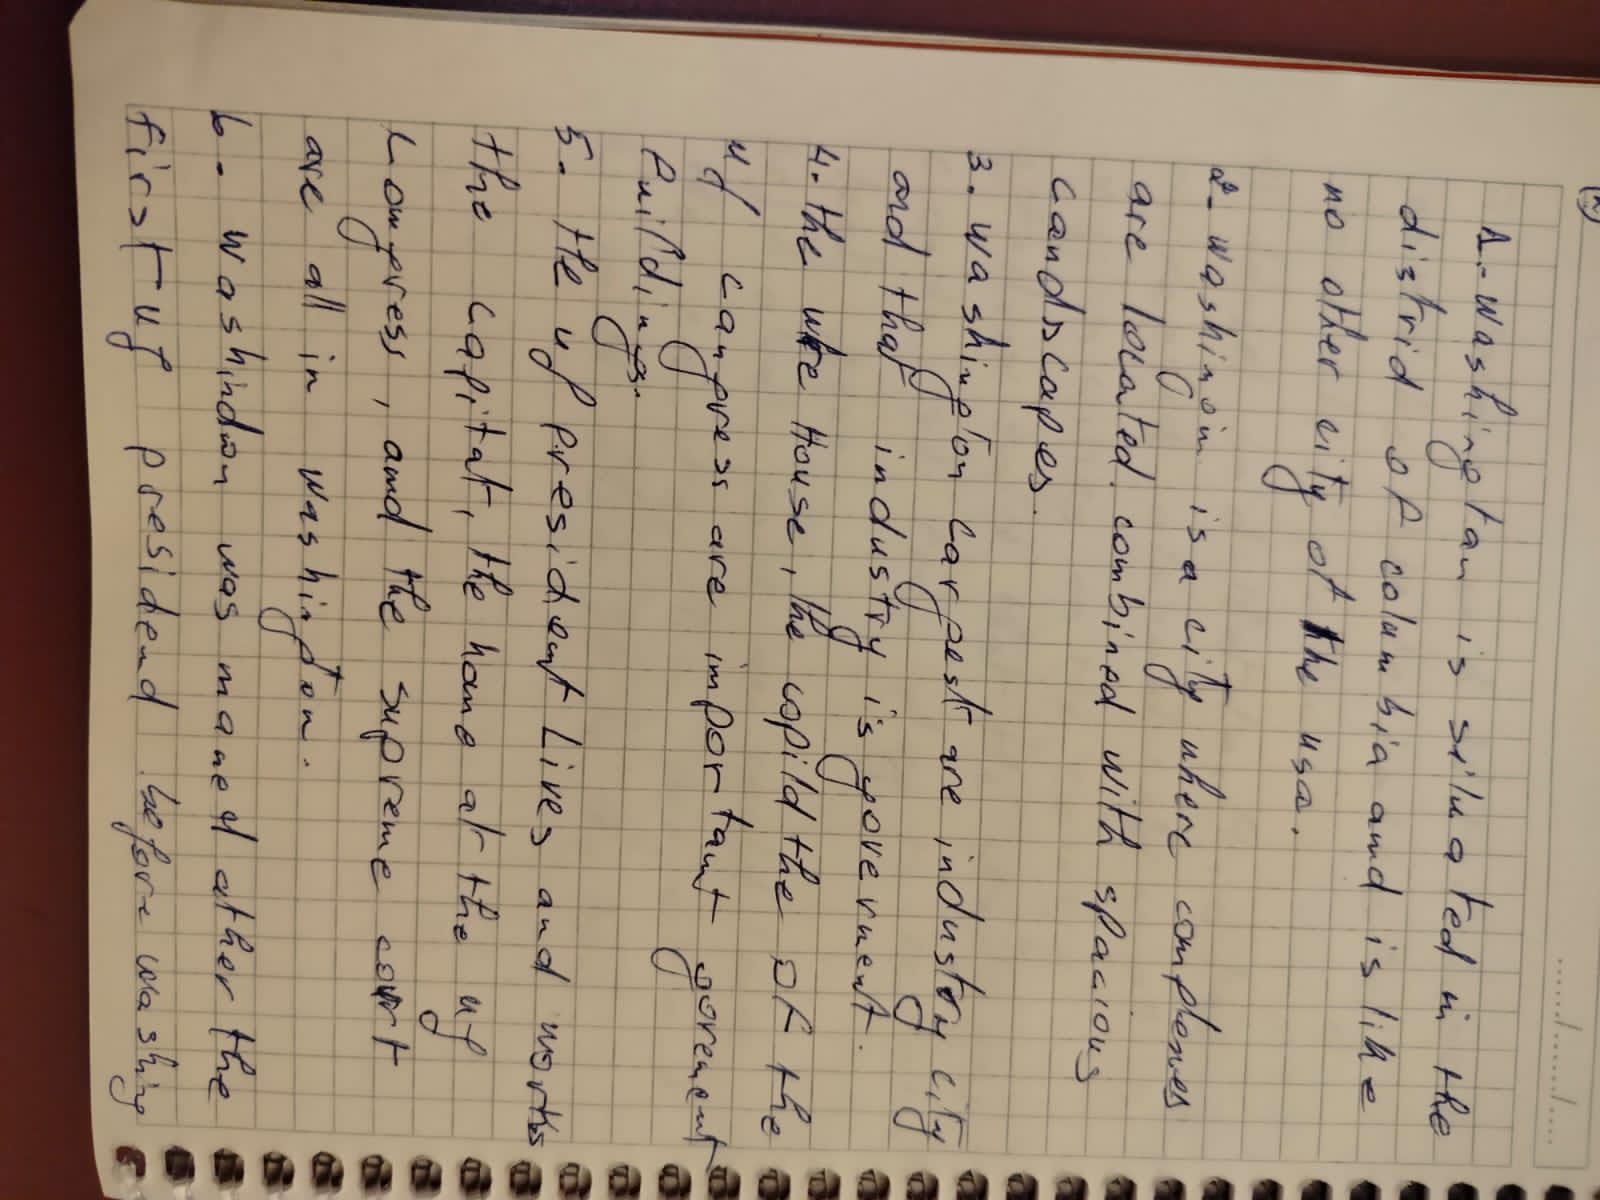 1.- Washingtan is silua ted in the
distrid of colum bia and is like
no other city of the usa.
2- washingoin is a city where complexes
are located combined with spacious
candscapes.
3. washington largest are industry city
and that industry is goverment.
4. the wte House, the copild the of the
us cangress are impor tant gorement
buildings.
5. the us president Lives and works
the capitat, the home at the us
Longress, and the supreme court
are all in washington.
6- washindon was maned ather the
first us presidend before washing